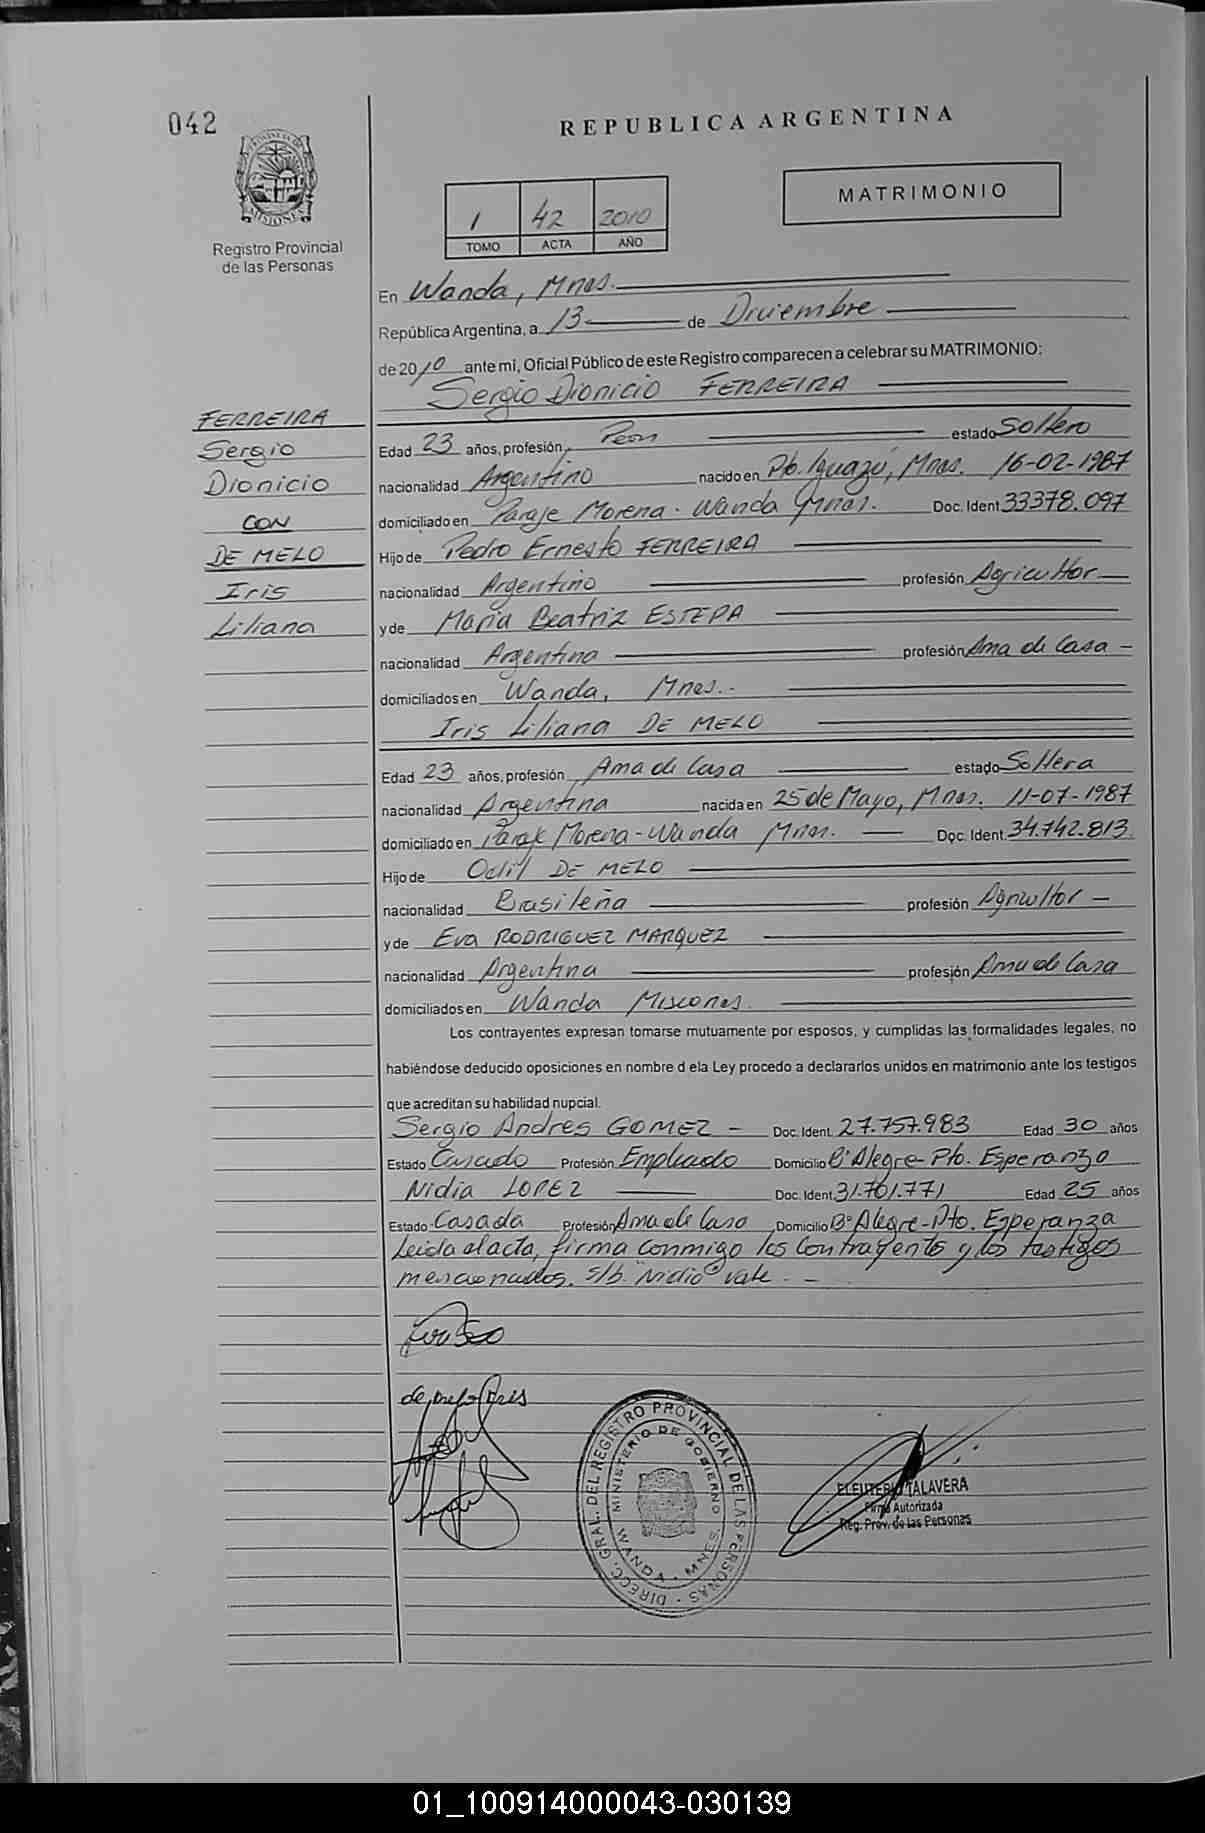 042
REPUBLICA ARGENTINA
PROVINCIA DE MISIONES
Registro Provincial
de las Personas
1 42 2010
TOMO ACTA AÑO
MATRIMONIO
En Wanda, Mnes.
República Argentina, a 13 de Diciembre
de 2010 ante mi, Oficial Público de este Registro comparecen a celebrar su MATRIMONIO:
Sergio Dionicio FERREIRA
FERREIRA
Sergio
Dionicio
CON
DE MELO
Iris
Liliana
Edad 23 años, profesión, Peon estado Soltero
nacionalidad Argentino nacido en Pto. Iguazú, Mnes. 16-02-1987
domiciliado en Paraje Morena - Wanda Mnes. Doc. Ident 33378.097
Hijo de Pedro Ernesto FERREIRA
nacionalidad Argentino profesión Agricultor
y de Maria Beatriz ESTEPA
nacionalidad Argentina profesión Ama de Casa -
domiciliados en Wanda, Mnes.-
Iris Liliana DE MELO
Edad 23 años, profesión Ama de Casa estado Soltera
nacionalidad Argentina nacida en 25 de Mayo, Mnes. 11-07-1987
domiciliado en Paraje Morena - Wanda Mnes. Doc. Ident. 34.742.813
Hijo de Odil DE MELO
nacionalidad Brasileña profesión Agricultor -
y de Eva RODRIGUEZ MARQUEZ
nacionalidad Argentina profesión Ama de Casa
domiciliados en Wanda Misiones.
Los contrayentes expresan tomarse mutuamente por esposos, y cumplidas las formalidades legales, no
habiéndose deducido oposiciones en nombre d ela Ley procedo a declararlos unidos en matrimonio ante los testigos
que acreditan su habilidad nupcial.
Sergio Andres GOMEZ - Doc. Ident. 27.757.983 Edad 30 años
Estado Casado Profesión Empleado Domicilio Bº Alegre - Pto. Esperanza
Nidia LOPEZ Doc. Ident. 31.701.771 Edad 25 años
Estado Casada Profesión Ama de Casa Domicilio Bº Alegre - Pto. Esperanza
Leida el acta, firma conmigo los Contrayentes y los testigos
mencionados. s/b. "Nidia" vale. -
de melo Iris
DIRECC. GRAL. DEL REGISTRO PROVINCIAL DE LAS PERSONAS
MINISTERIO DE GOBIERNO
WANDA - MNES.
ELEUTERIO TALAVERA
Firma Autorizada
Reg. Prov. de las Personas
01_100914000043-030139